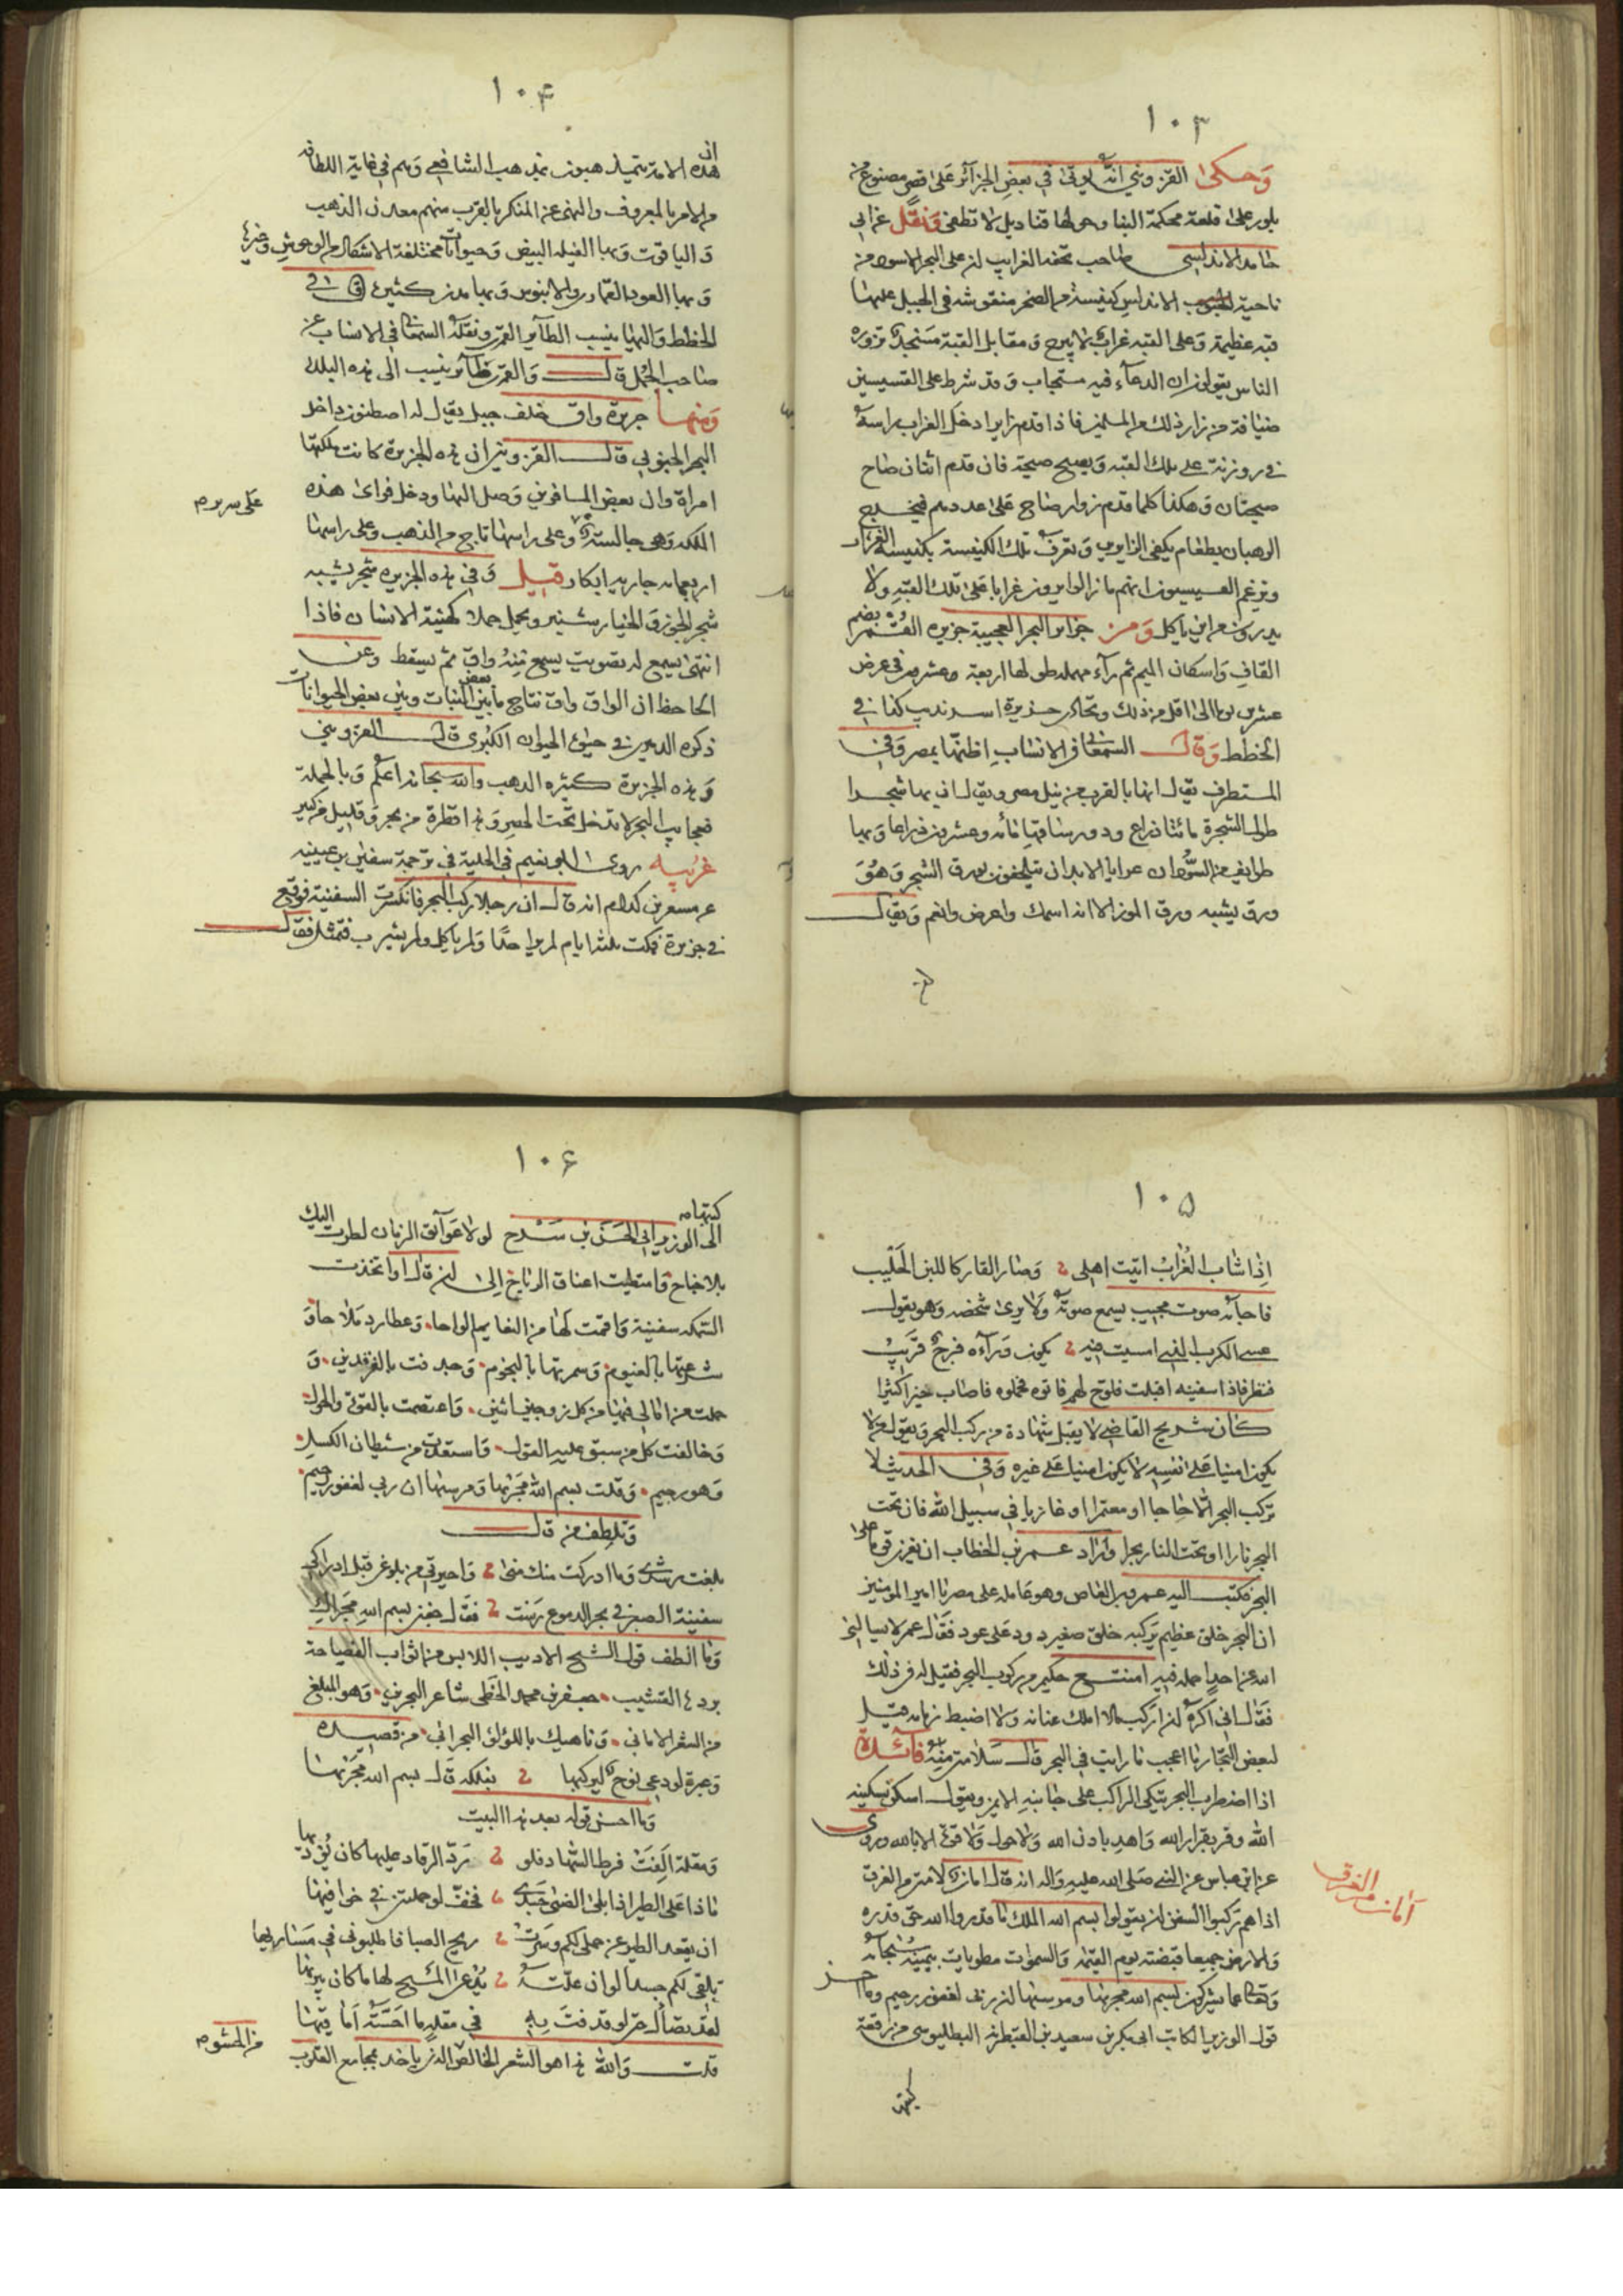 ١٠٣
وَحكى القزويني انه يوتى في بعض الجزائر على قصر مصنوع من
بلور على قلعة محكمة البنا وحولها قناديل لا تطفى وَنقل عن ابى
حامد الاندلسي صاحب تحفه الغرايب ان على البحر الاسود من
ناحية الاندلس كنيسة من الصخر منقوشه في الجبل عليها
قبه عظيمة وَعلى القبه غراب لا يبرح وَمقابل القبة مسجد تزوره
الناس يقولون ان الدعاء فيه مستجاب وَقد شرط على القسيسين
ضيافة من زار ذلك من المسلمين فاذا قدم زاير ادخل الغراب راسه
في روزنة على تلك القبه وَيصيح صيحة فان قدم اثنان صاح
صيحتان وَهكذا كلما قدم زوار صاح على عددهم فيخرج
الرهبان بطعام يكفي الزايرين وَتعرف تلك الكنيسة بكنيسة الغراب
وتزعم القسيسون انهم ما زالوا يرون غرابا على تلك القبه ولا
يدرون من اين ياكل وَمن جزاير البحر العجيبة جزيره القُمر بضم
القاف وَاسكان الميم ثم رآء مهمله طولها اربعة وعشرون في عرض
عشرين يوما الى اقل من ذلك وتحاذى جزيرة سرنديب كذا في
الخطط وَقال السمعانى في الانساب اظنها بمصر وَفي
المستطرف يقال انها بالقرب من نيل مصر ويقال ان بها شجرا
طول الشجرة مائتا ذراع ودور ساقها مائه وعشرون ذراعا وَبها
طوايف من السودان عرايا الابدان يلتحفون بورق الشجر وَهُوَ
ورق يشبه ورق الموز الا انه اسمك واعرض وانعم وَيقال
١٠٤
ان هذه الامة يتمذهبون بمذهب الشافعي وَهم في غاية اللطافه
والامر بالمعروف والنهى عن المنكر بالقرب منهم معدن الذهب
وَالياقوت وَبها الفيله البيض وَحيوانات مختلفة الاشكال من الوحوش وغيرها
وَبها العود القماري والابنوس وَبها مدن كثيرة قال في
الخطط وَاليها ينسب الطاير القمرى ونقله السمعانى في الانساب عن
صاحب الجمل قال وَالقمرى طاير ينسب الى هذه البلد
وَمنها جزيرة واق خلف جبل يقال له اصطنون داخل
البحر الجنوبي قال القزويني ان هذه الجزيرة كانت ملكتها
امراة وان بعض المسافرين وَصل اليها ودخل فراى هذه
الملكه وَهى جالسة وعلى راسها تاج من الذهب وعلى راسها
على سرير
اربعمايه جاريه ابكار قيل وَفي هذه الجزيرة شجر يشبه
شجر الجوز وَالخيار شنبر ويحمل حملا كهيئة الانسان فاذا
انتهى يسمع له تصويت يسمع منه واق ثم يسقط وعن
الجاحظ ان الواق واق نتاج ما بين بعض النبات وبين بعض الحيوانات
ذكره الدميرى في حيوة الحيوان الكبرى قال القزويني
وَهذه الجزيرة كثيره الذهب والله سبحانه اعلم وَبالجملة
فعجايب البحر لا تدخل تحت الحصر وَهذا قطرة من بحر وَقليل من كثير
غريبه روى ابو نعيم في الحلية في ترجمة سفين بن عيينه
عن مسعر بن كدام انه قال ان رجلا ركب البحر فانكسرت السفينة فوقع
في جزيرة فمكث ثلثة ايام لم ير احدًا وَلم ياكل ولم يشرب فتمثل فقال
١٠٥
اذا شاب الغُراب اتيت اهلى وَصار القار كاللبن الحَليب
فاجابه صوت مجيب يسمع صوته وَلا يرى شخصه وَهو يقول
عسى الكرب الذي امسيت فيه يكون وَرآءه فرج قريب
فنظر فاذا سفينه اقبلت فلوح لهم فاتوه فحملوه فاصاب خيرا كثيرا
كان شريح القاضي لا يقبل شهادة من ركب البحر وَيقول من لا
يكون امينا على نفسه لا يكون امينا على غيره وَفى الحديث لا
تركب البحر الا حاجا او معتمرا او غازيا في سبيل الله فان تحت
البحر نارا او تحت النار بحرا واراد عمر بن الخطاب ان يغزى قوما على
البحر فكتب اليه عمرو بن العاص وهو عامله على مصر يا امير المومنين
ان البحر خلق عظيم يركبه خلق صغير دود على عود فقال عمر لا يسالنى
الله عن احد احمله فيه امتنع حكيم من ركوب البحر فقيل له في ذلك
فقال انى اكره ان اركب ما لا املك عنانه ولا اضبط زمامه قيل
لبعض التجار ما اعجب ما رايت في البحر قال سلامتى منه فائدة
اذا اضطرب البحر يتكى الراكب على جانبه الايمن ويقول اسكن بسكينه
الله وقر بقرار الله وَاهد باذن الله وَلا حول وَلا قوة الا بالله وروى
عن ابن عباس عن النبي صلى الله عليه وَاله انه قال امان لامتى من الغرق
امان من الغرق
اذا هم ركبوا السفن ان يقولوا بسم الله الملك وما قدروا الله حق قدره
وَالارض جميعا قبضته يوم القيمة وَالسموات مطويات بيمينه سبحانه
وَتعالى عما يشركون بسم الله مجريها ومرسيها ان ربى لغفور رحيم وما احسن
قول الوزير الكاتب ابى بكر بن سعيد بن القبطرنه البطليوسى من رقعة
كتبها
١٠٦
كتبها
الى الوزير ابى الحسن بن سراج لولا عَوآئق الزمان لطرت اليك
بلا جناح وَامتطيت اعناق الرياح الى ان قال او اتخذت
السمكه سفينة وَاقمت لها من النعايم الواحا وَعطارد ملاحا وَ
شرعتها بالغيوم وَسمرتها بالنجوم وَجدفت بالفرقدين وَ
حملت من امالى فيها من كل زوجين اثنين وَاعتصمت بالقوة والحول
وَخالفت كل من سبق عليه القول وَاستعذت من شيطان الكسل
وَهو رجيم وَقلت بسم الله مَجريها وَمرسيها ان ربي لغفور رحيم
وَتلطف من قال
بلغت رشدى وَما ادركت منك منى وَاحيرتي من بلوغى قبل ادراكى
سفينة الصبر في بحر الدموع رَست فقال جفنى بسم الله مَجراك
وَما الطف قول الشيخ الاديب اللابس من اثواب الفصاحة
برده القشيب جعفر بن محمد الخطى شاعر البحرين وَهو المبلغ
من الشعر الامانى وَناهيك باللؤلؤ البحرانى من قصيده
وَعبرة لو دعى نوح ليركبها بفلكه قال بسم الله مَجريها
وَما احسن قوله بعد هذا البيت
وَمقلة الِفَتْ فرط السهاد فلو رُدّ الرقاد عليها كان يُؤذيها
ماذا على الطير اذا بلى الضنى جسدى فخفّ لو حملتنى في خوافيها
ان يقعد الطير عن حملى لكم وَسَرَت ريح الصبا فاطلبونى في مَساريها
تلقى لكم جسدا لو ان علّته يُدعى المسيح لها ما كان يبريها
في مقلةٍ ما احَسَّته اَماقيها
من المشوم
قلت وَالله هذا هو الشعر الخالص الذى ياخذ بمجامع القلوب